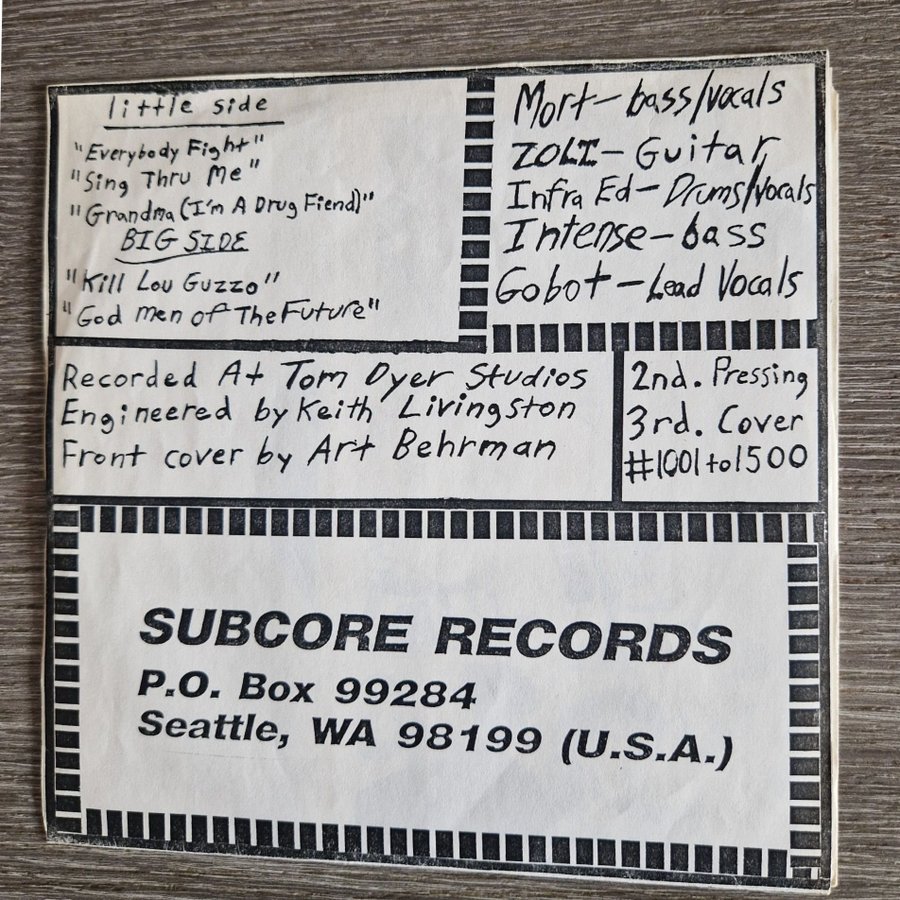 little side
"Everybody Fight"
"Sing Thru Me"
"Grandma (I'm A Drug Fiend)"
BIG SIDE
"Kill Lou Guzzo"
"God men of The Future"
Mort - bass/vocals
ZOLI - Guitar
Infra Ed - Drums/Vocals
Intense - bass
Gobot - Lead Vocals
Recorded At Tom Dyer Studios
Engineered by Keith Livingston
Front cover by Art Behrman
2nd. Pressing
3rd. Cover
#1001 to 1500
SUBCORE RECORDS
P.O. Box 99284
Seattle, WA 98199 (U.S.A.)